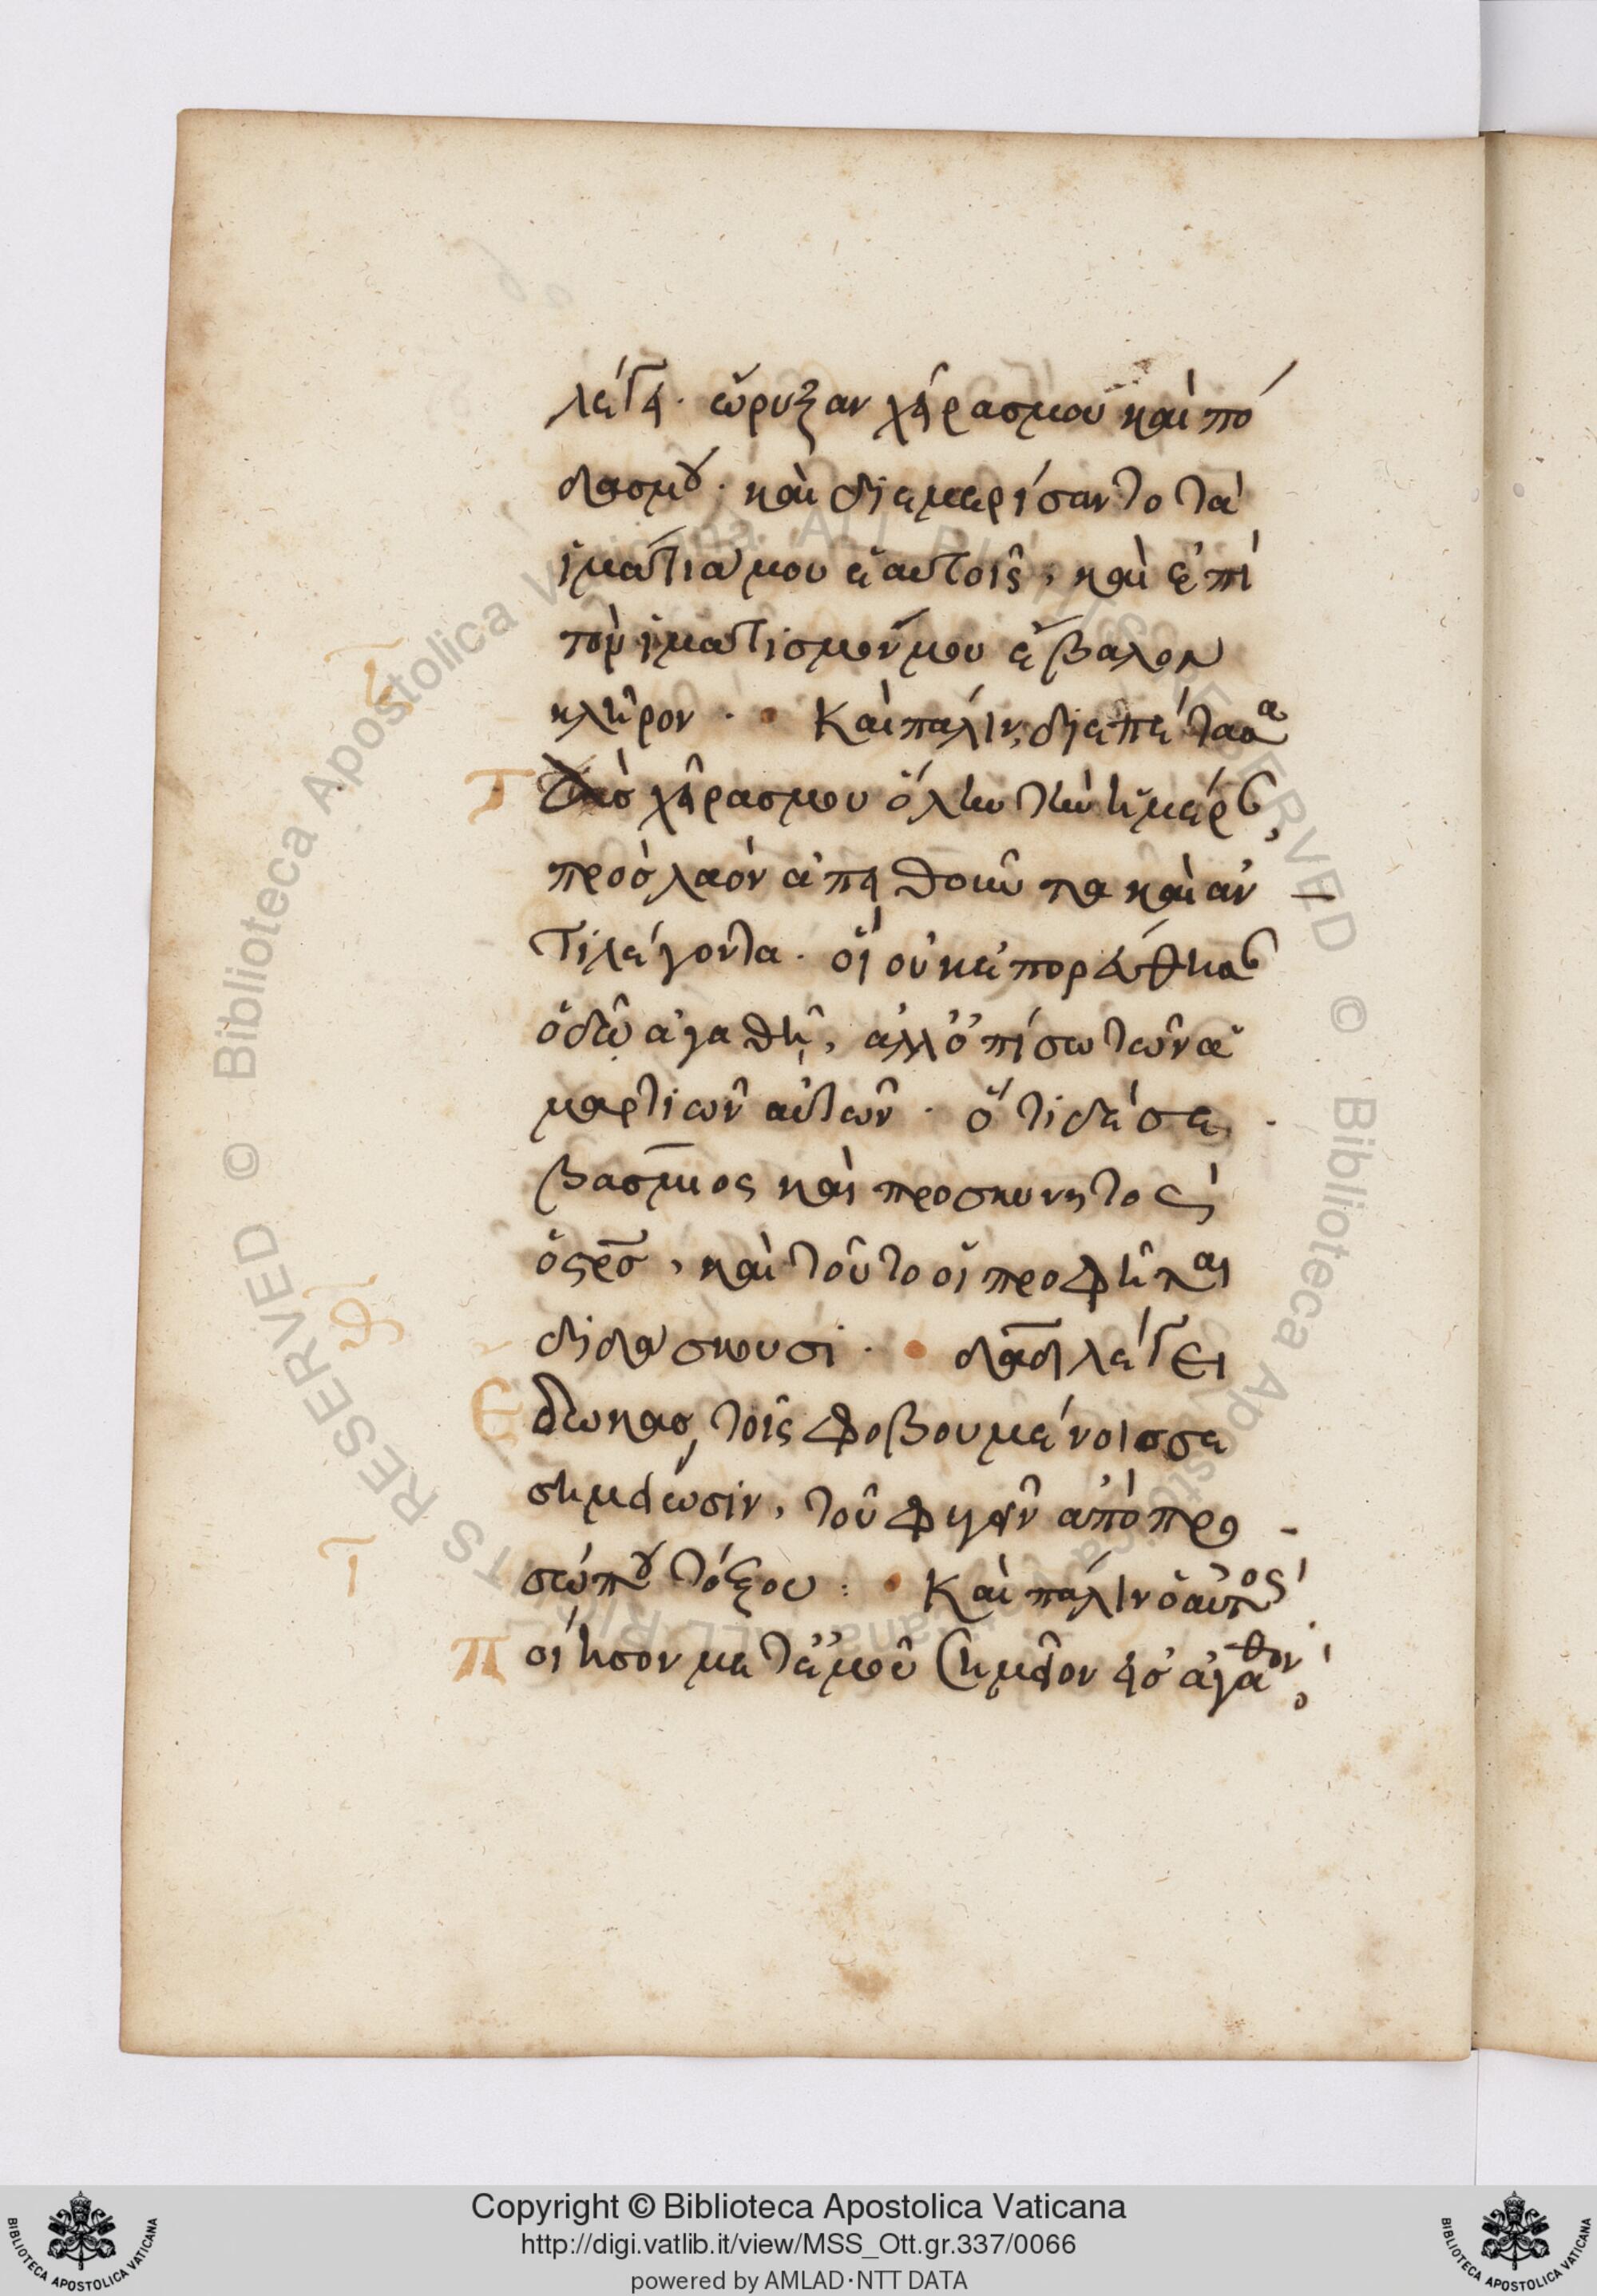 λέγει. ὤρυξαν χεῖρασμου καὶ πό
δασμου· καὶ διεμερίσαντο τὰ
ἱμάτιά μου ἑαυτοῖς, καὶ ἐπὶ
τὸν ἱματισμόν μου ἔβαλον
κλῆρον · Καὶ πάλιν, διεπέτασα
Τὰσ χεῖρασμου ὅλην τὴν ἡμέραν,
πρὸσ λαὸν ἀπειθοῦντα καὶ ἀν
τιλέγοντα. οἳ οὐκ ἐπορεύθησαν
ὁδῷ ἀγαθῇ, ἀλλ' ὀπίσω τῶν ἁ
μαρτιῶν αὐτῶν · ὅτι δέ σε
βάσμιος καὶ προσκυνητὸς
ὁ σρσ, καὶ τοῦτο οἱ προφῆται
διδάσκουσι · δαδ λέγει
Ἔδωκασ, τοῖς φοβουμένοισ σε
σημείωσιν, τοῦ φυγεῖν ἀπὸ προ
σώπου τόξου : Καὶ πάλιν ὁ αὐτός
Ποίησον μετ' ἐμοῦ σημεῖον εἰσ ἀγαθόν,
Copyright © Biblioteca Apostolica Vaticana
http://digi.vatlib.it/view/MSS_Ott.gr.337/0066
powered by AMLAD·NTT DATA
BIBLIOTECA APOSTOLICA VATICANA
BIBLIOTECA APOSTOLICA VATICANA